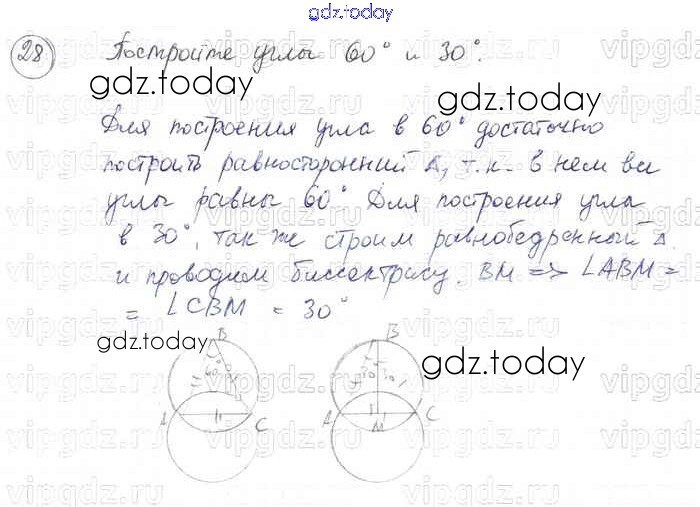 gdz.today
28 Постройте углы 60° и 30°.
gdz.today
gdz.today
Для построения угла в 60° достаточно
построить равносторонний Δ, т.к. в нем все
углы равны 60° Для построения угла
в 30°, так же строим равнобедренный Δ.
и проводим биссектрису. BM => ∠ABM =
= ∠CBM = 30°
B B
gdz.today
gdz.today
60°
A C A M C
vipgdz.ru